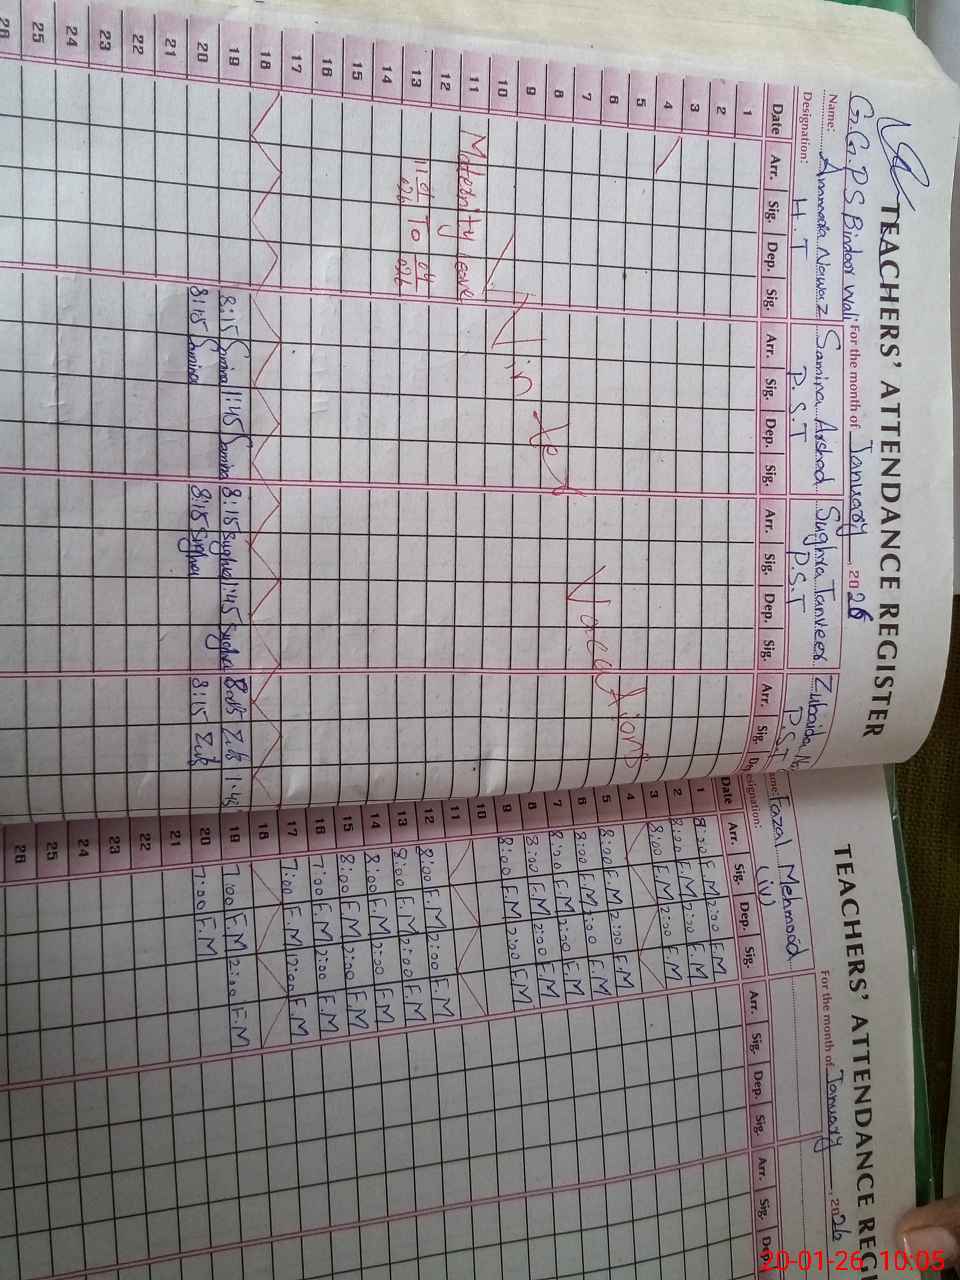 TEACHERS' ATTENDANCE REGISTER
G.G.P.S Bindoor Wali For the month of January, 2026
Name: Ammara Nawaz Samina Arshad Sughra Tanveer Zubaida
Designation: H.T P.S.T P.S.T P.S.T
Date Arr. Sig. Dep. Sig. Arr. Sig. Dep. Sig. Arr. Sig. Dep. Sig. Arr. Sig.
1
2
3
4
5
6
7
8
9
10
11
12
13
14
15
16
17
18
19 8:15 Samina 1:45 Samina 8:15 Sughra 1:45 Sughra Zub 1:45
20 8:15 Samina 8:15 Sughra 8:15 Zub
21
22
23
24
25
26
Winter Vacations
Maternity leave
11 01 026 To 04 026
TEACHERS' ATTENDANCE REGI
For the month of January, 2026
Fazal Mehmood
Designation: (iv)
Date Arr. Sig. Dep. Sig. Arr. Sig. Dep. Sig. Arr. Sig. Dep.
1 8:00 F.M 2:00 F.M
2 8:00 F.M 2:00 F.M
3 8:00 F.M 2:00 F.M
4
5 8:00 F.M 2:00 F.M
6 8:00 F.M 2:00 F.M
7 8:00 F.M 2:00 F.M
8 8:00 F.M 2:00 F.M
9 8:00 F.M 2:00 F.M
10
11
12 8:00 F.M 2:00 F.M
13 8:00 F.M 2:00 F.M
14 8:00 F.M 2:00 F.M
15 8:00 F.M 2:00 F.M
16 7:00 F.M 2:00 F.M
17 7:00 F.M 2:00 F.M
18
19 7:00 F.M 2:00 F.M
20 7:00 F.M
21
22
23
24
25
26
20-01-26 10:05